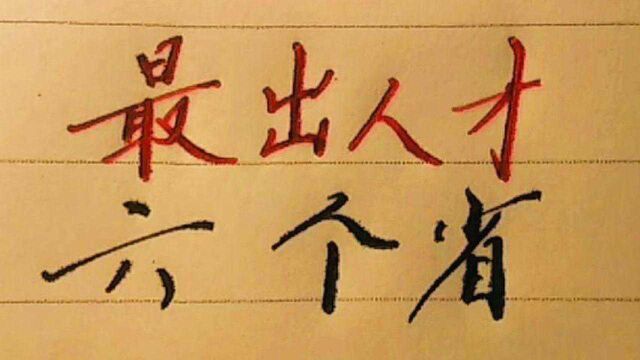 最出人才
六个省